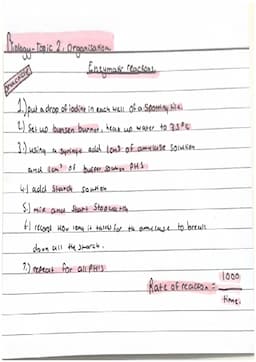 Biology-Topic 2: Organisation
Enzymatic reactions
practical
1.) put a drop of iodine in each well of a spotting tile
2.) Set up bunsen burner, heat up water to 35°C
3.) using a syringe add 1cm³ of amylase solution
and 1cm³ of buffer solution pH5
4.) add starch solution
5.) mix and start stopwatch
6.) record how long it takes for the amylase to break
down all the starch.
7.) repeat for all pH's
Rate of reaction = 1000
time